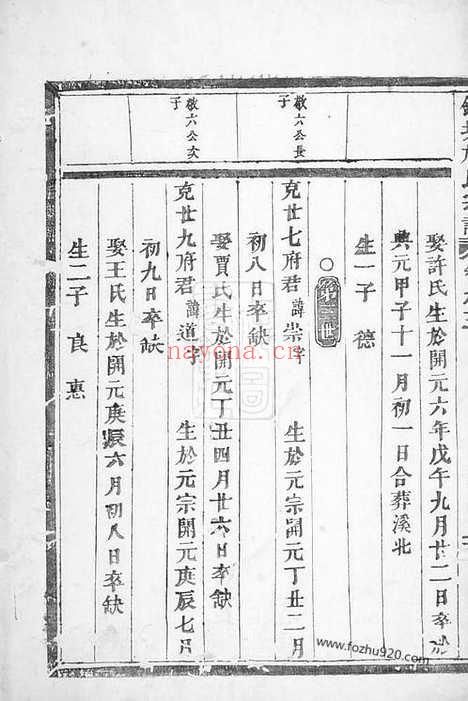 娶許氏生於開元六年戊午九月廿二日卒於
興元甲子十一月初一日合葬溪北
生一子 德
○第三世
敬六公長子
克世七府君 諱崇字 生於元宗開元丁丑二月
初八日卒缺
娶賈氏生於開元丁丑四月廿六日卒缺
敬六公次子
克世九府君 諱道字 生於元宗開元庚辰七月
初九日卒缺
娶王氏生於開元庚辰六月初八日卒缺
生二子 良 惠
nayona.cn
www.fozhu920.com